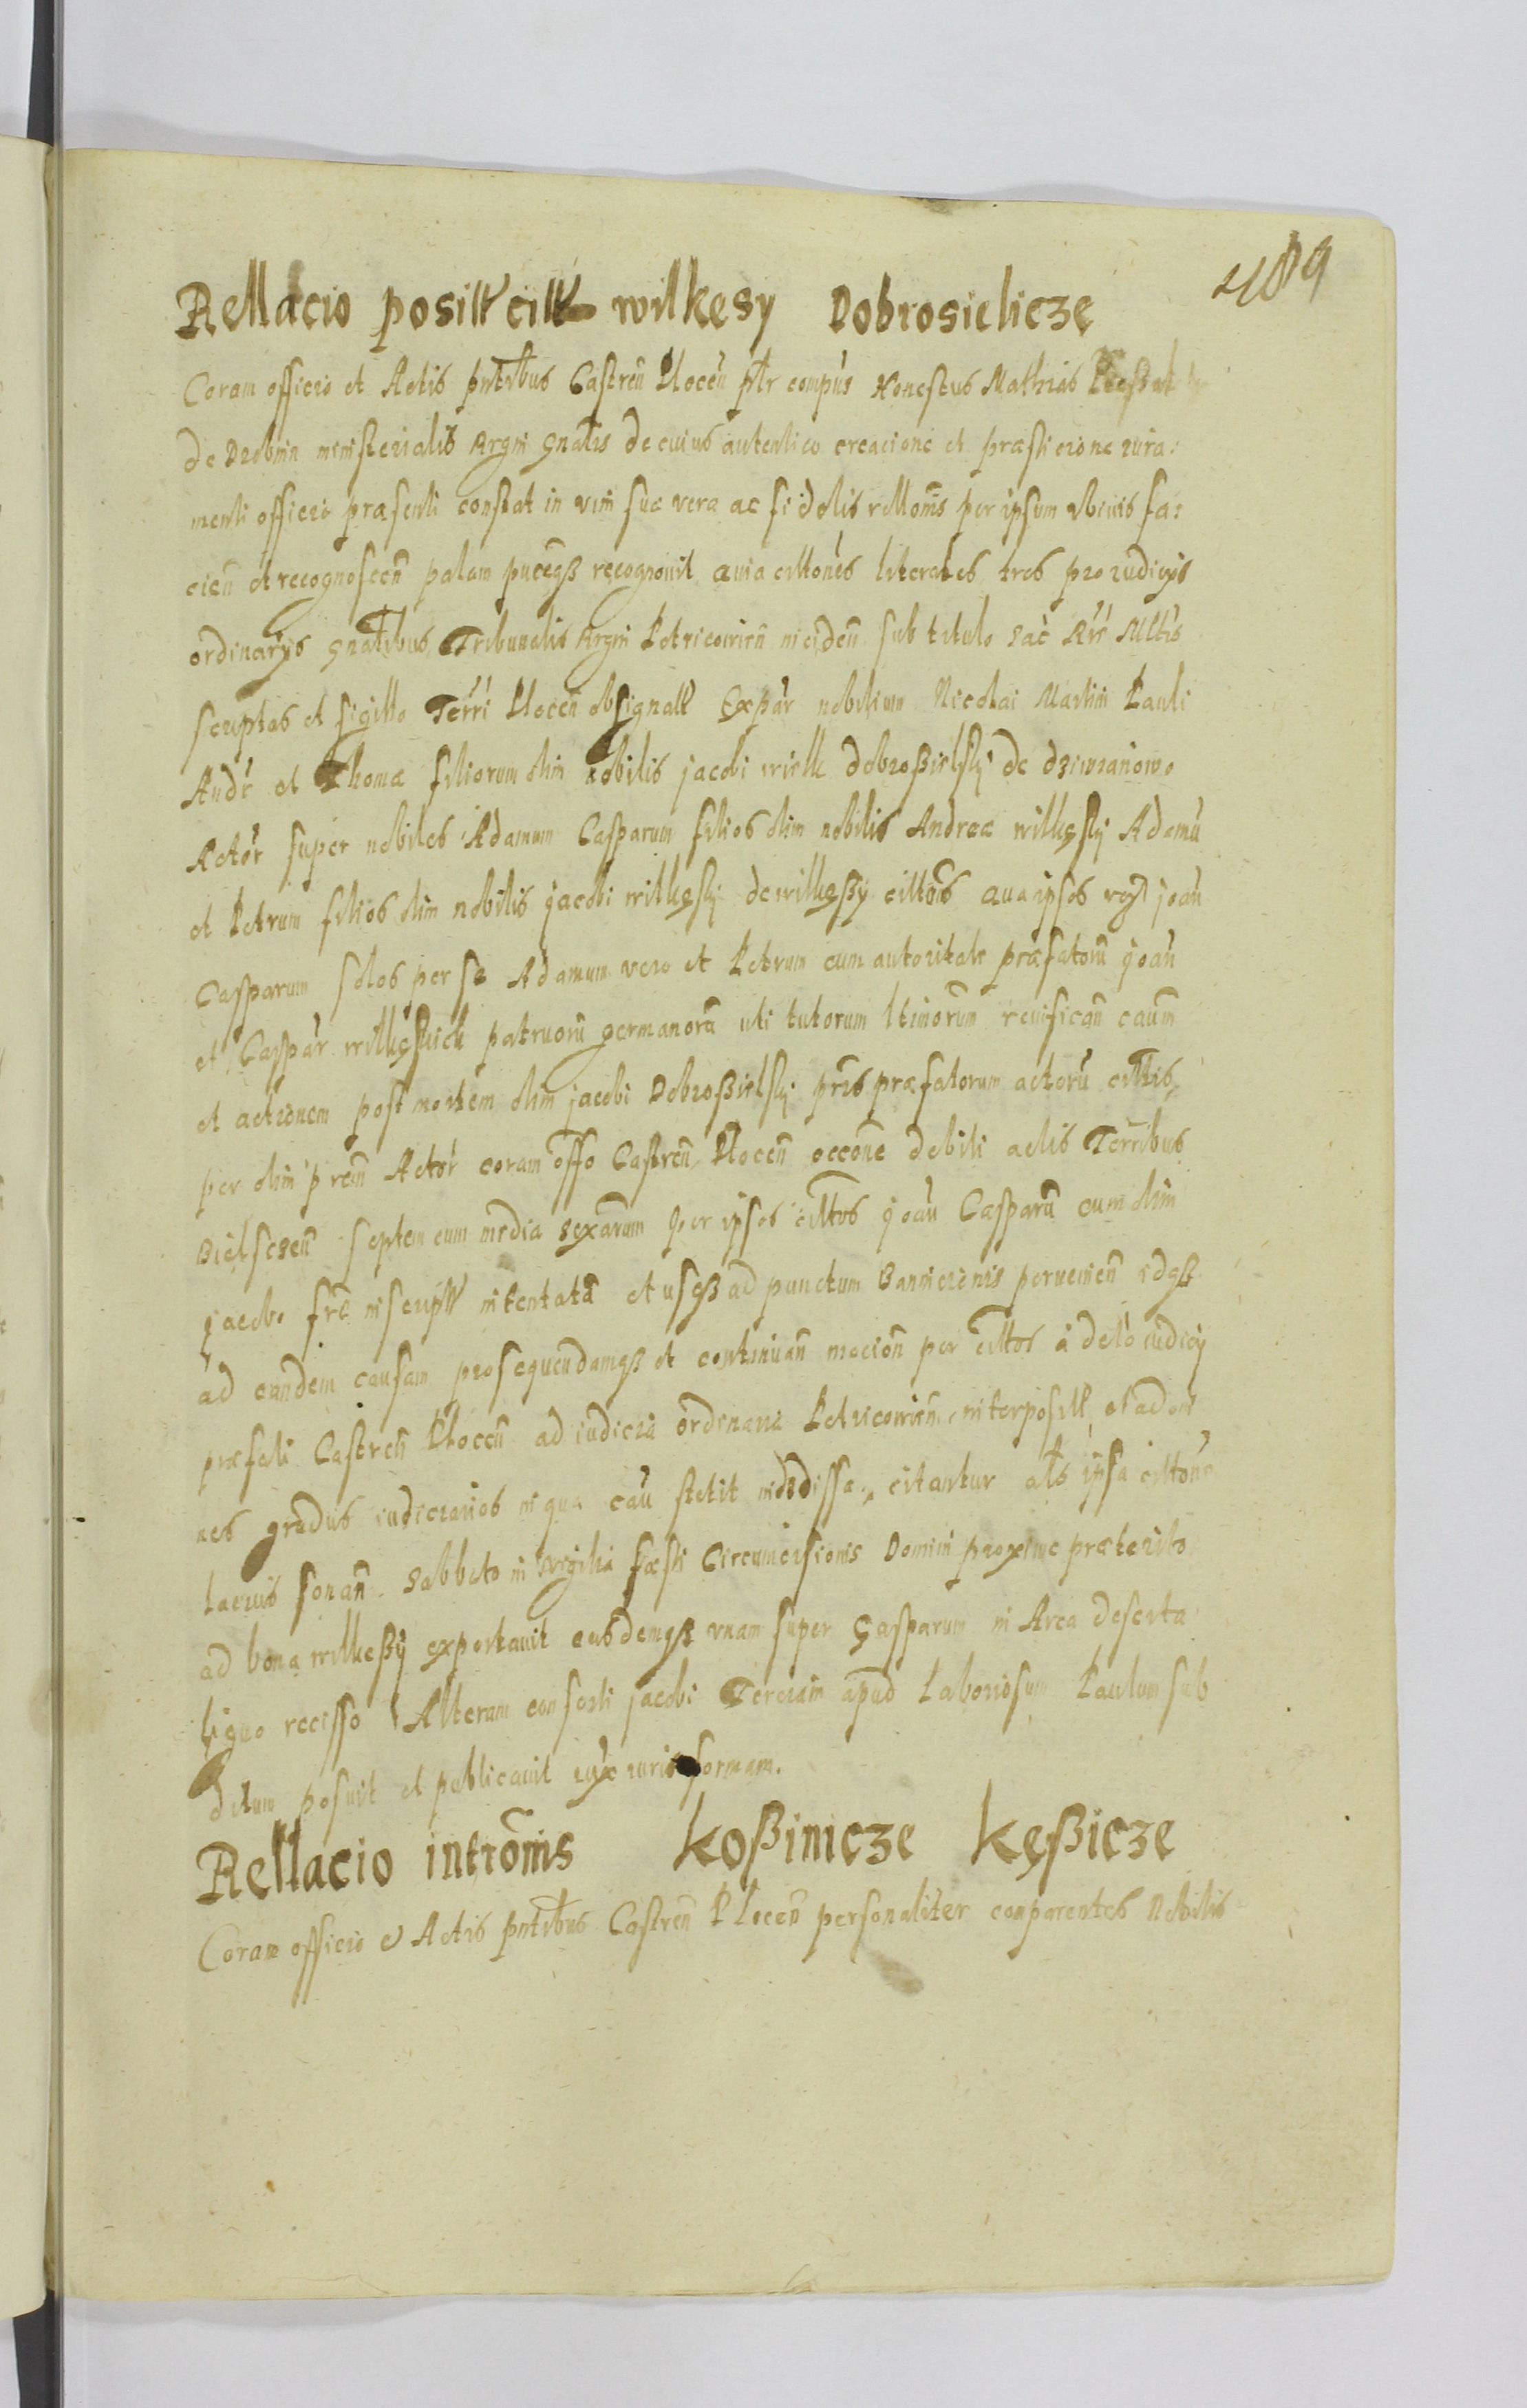 489
Rellacio positt citt wilkęsy Dobrosieliczę
Coram officio et Actis pntibus Castren Plocen pltr compns Honestus Mathias
de Drobnin ministerialis Regni gnalis de cuius autentico creacione et præsticione iura:
menti officio præsenti constat in vim suæ veræ ac fidelis rellonis per ipsum obinis fa:
cien et recognoscen palam pncegß recognovit, quia cittones literales tres pro iudicijs
ordinarijs gnalibus Tribunalis Regni Petricovien inciden sub titulo Sac Rrę Mttis
scriptas et sigillo Terri Plocen obsignatt Ex par nobilium Nicolai Martini Pauli
Andr et Thomæ filiorum olim nobilis jacobi wielk dobroßielskj de dziewanowo
Actor super nobiles Adamum Casparum filios olim nobilis Andreæ wilkęskj Adamu
et Petrum filios olim nobilis jacobi wilkęskj de wilkęßÿ cittos qua ipsos joan
Casparum solos per se Adamum vero et Petrum cum autoritate præfatoru joan
et Caspar wilkęskich patruoru germanoru uti tutorum ltimorum revifican caum
et actionem post mortem olim jacobi Dobroßielskj pris præfatorum actoru cittis,
per olim prem Actor coram offo Castren Plocen occone debiti actis Terribus
Bielscen septem cum media sexarum per ipsos cittos joan Casparu cum olim
jacobo fre inscriptt intentata et usqß ad punctum Banicionis pervenien idqß
ad eandem causam prosequendamqß et continuan mocion per cittos a deto iudicij
præfati Castren Plocen ad iudicia ordinaria Petricovien interpositt et ad om
nes gradus iudiciarios in qua cau stetit indedissa, citantur als ipsa cittone
lacius sonan. Sabbato in vigilia fæsti Circumcisionis Domini proxime præterito
ad bona wilkeßÿ exportavit easdemqß unam super Casparum in Area deserta
ligno recisso Alteram consorti jacobi Terciam apud Laboriosum Paulum sub
ditum posuit et publicavit iux iuris formam.
Rellacio intromis Koßiniczę Kęßicze
Coram officio et Actis pntibus Castren Plocen personaliter comparentes Nobilis